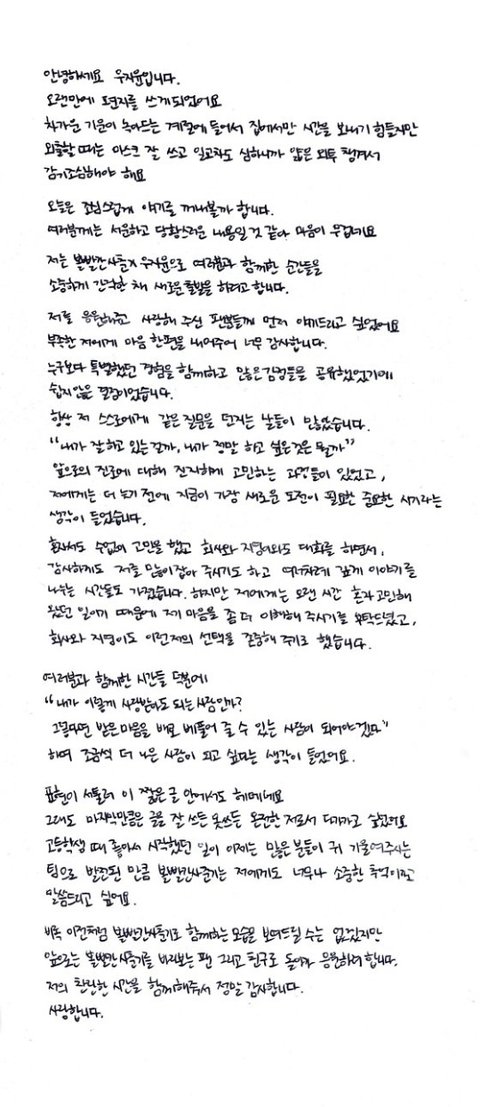 안녕하세요 우지윤입니다.
오랜만에 편지를 쓰게되었어요
차가운 기운이 녹아드는 계절에 들어서 집에서만 시간을 보내기 힘들지만
외출할 때는 마스크 잘 쓰고 일교차도 심하니까 얇은 외투 챙겨서
감기조심해야 해요
오늘은 조심스럽게 얘기를 꺼내볼까 합니다.
여러분께는 서운하고 당황스러운 내용일 것 같아 마음이 무겁네요
저는 볼빨간사춘기 우지윤으로 여러분과 함께한 순간들을
소중하게 간직한 채 새로운 출발을 하려고 합니다.
저를 응원해주고 사랑해 주신 팬분들께 먼저 얘기드리고 싶었어요
부족한 저에게 마음 한편을 내어주어 너무 감사합니다.
누구보다 특별했던 경험을 함께하고 많은 감정들을 공유했었기에
쉽지 않은 결정이었습니다.
항상 저 스스로에게 같은 질문을 던지는 날들이 많았습니다.
“내가 잘 하고 있는 걸까, 내가 정말 하고 싶은 것은 뭘까”
앞으로의 진로에 대해 진지하게 고민하는 과정들이 있었고,
저에게는 더 늦기 전에 지금이 가장 새로운 도전이 필요한 중요한 시기라는
생각이 들었습니다.
혼자서도 수없이 고민을 했고 회사와 지영이와도 대화를 하면서,
감사하게도 저를 많이 잡아 주시기도 하고 여러차례 깊게 이야기를
나누는 시간들도 가졌습니다. 하지만 저에게는 오랜 시간 혼자 고민해
왔던 일이기 때문에 제 마음을 좀 더 이해해 주시기를 부탁드렸고,
회사와 지영이도 이런 저의 선택을 존중해 주기로 했습니다.
여러분과 함께한 시간들 덕분에
“내가 이렇게 사랑받아도 되는 사람인가?
그렇다면 받은 마음을 배로 베풀어 줄 수 있는 사람이 되어야겠다”
하며 조금씩 더 나은 사람이 되고 싶다는 생각이 들었어요.
표현이 서툴러 이 짧은 글 안에서도 헤매네요
그래도 마지막만큼은 글을 잘 쓰든 못쓰든 온전한 저로서 다가가고 싶었어요
고등학생 때 좋아서 시작했던 일이 이제는 많은 분들이 귀 기울여주시는
팀으로 발전된 만큼 볼빨간사춘기는 저에게도 너무나 소중한 추억이라고
말씀드리고 싶어요.
비록 이전처럼 볼빨간사춘기로 함께하는 모습을 보여드릴 수는 없겠지만
앞으로는 볼빨간사춘기를 바라보는 팬 그리고 친구로 돌아가 응원하려 합니다.
저의 찬란한 시간을 함께해줘서 정말 감사합니다.
사랑합니다.